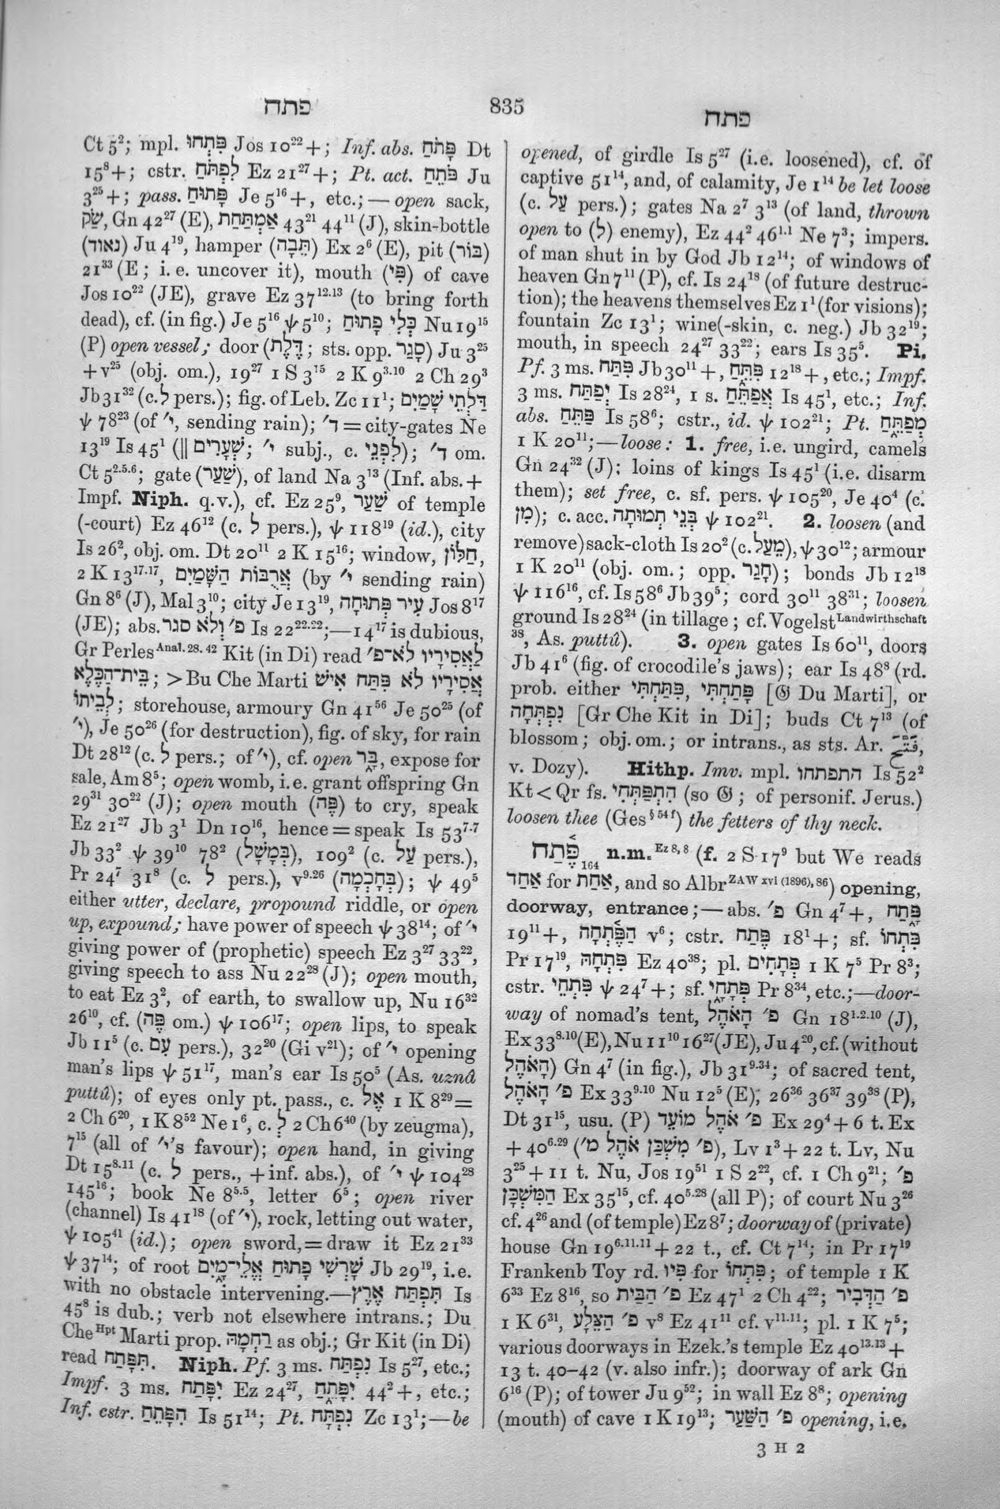 פתח
835
פתח
Ct 5²; mpl. פִּתְחוּ Jos 10²²+; Inf. abs. פָּתֹחַ Dt
15⁸+; cstr. לִפְתֹּחַ Ez 21²⁷+; Pt. act. פֹּתֵחַ Ju
3²⁵+; pass. פָּתוּחַ Je 5¹⁶+, etc.;—open sack,
שַׂק, Gn 42²⁷ (E), אַמְתַּחַת 43²¹ 44¹¹ (J), skin-bottle
(נאוד) Ju 4¹⁹, hamper (תֵּבָה) Ex 2⁶ (E), pit (בּוֹר)
21³³ (E; i.e. uncover it), mouth (פִּי) of cave
Jos 10²² (JE), grave Ez 37¹²·¹³ (to bring forth
dead), cf. (in fig.) Je 5¹⁶ ψ 5¹⁰; כְּלִי פָתוּחַ Nu 19¹⁵
(P) open vessel; door (דֶּלֶת; sts. opp. סָגַר) Ju 3²⁵
+v²⁵ (obj. om.), 19²⁷ 1 S 3¹⁵ 2 K 9³·¹⁰ 2 Ch 29³
Jb 31³² (c. לְ pers.); fig. of Leb. Zc 11¹; דַּלְתֵי שָׁמַיִם
ψ 78²³ (of י׳, sending rain); ד׳=city-gates Ne
13¹⁹ Is 45¹ (|| שְׁעָרִים; י׳ subj., c. לִפְנֵי); ד׳ om.
Ct 5²·⁵·⁶; gate (שַׁעַר), of land Na 3¹³ (Inf. abs.+
Impf. Niph. q.v.), cf. Ez 25⁹, שַׁעַר of temple
(-court) Ez 46¹² (c. לְ pers.), ψ 118¹⁹ (id.), city
Is 26², obj. om. Dt 20¹¹ 2 K 15¹⁶; window, חַלּוֹן,
2 K 13¹⁷·¹⁷, אֲרֻבּוֹת הַשָּׁמַיִם (by י׳ sending rain)
Gn 8⁶ (J), Mal 3¹⁰; city Je 13¹⁹, עִיר פְּתוּחָה Jos 8¹⁷
(JE); abs. פ׳ וְלֹא סגר Is 22²²·²²;—14¹⁷ is dubious,
Gr Perles Anal. 28. 42 Kit (in Di) read לַאֲסִירָיו לֹא־פ׳
בֵּית־הַכֶּלֶא; > Bu Che Marti אֲסִירָיו לֹא פִתַּח אִישׁ
לְבֵיתוֹ; storehouse, armoury Gn 41⁵⁶ Je 50²⁵ (of
י׳), Je 50²⁶ (for destruction), fig. of sky, for rain
Dt 28¹² (c. לְ pers.; of י׳), cf. open בָּר, expose for
sale, Am 8⁵; open womb, i.e. grant offspring Gn
29³¹ 30²² (J); open mouth (פֶּה) to cry, speak
Ez 21²⁷ Jb 3¹ Dn 10¹⁶, hence=speak Is 53⁷·⁷
Jb 33² ψ 39¹⁰ 78² (בְּמָשָׁל), 109² (c. עַל pers.),
Pr 24⁷ 31⁸ (c. לְ pers.), v⁹·²⁶ (בְּחָכְמָה); ψ 49⁵
either utter, declare, propound riddle, or open
up, expound; have power of speech ψ 38¹⁴; of י׳
giving power of (prophetic) speech Ez 3²⁷ 33²²,
giving speech to ass Nu 22²⁸ (J); open mouth,
to eat Ez 3², of earth, to swallow up, Nu 16³²
26¹⁰, cf. (פֶּה om.) ψ 106¹⁷; open lips, to speak
Jb 11⁵ (c. עִם pers.), 32²⁰ (Gi v²¹); of י׳ opening
man's lips ψ 51¹⁷, man's ear Is 50⁵ (As. uznâ
puttû); of eyes only pt. pass., c. אֶל 1 K 8²⁹=
2 Ch 6²⁰, 1 K 8⁵² Ne 1⁶, c. לְ 2 Ch 6⁴⁰ (by zeugma),
7¹⁵ (all of י׳'s favour); open hand, in giving
Dt 15⁸·¹¹ (c. לְ pers., +inf. abs.), of י׳ ψ 104²⁸
145¹⁶; book Ne 8⁵·⁵, letter 6⁵; open river
(channel) Is 41¹⁸ (of י׳), rock, letting out water,
ψ 105⁴¹ (id.); open sword,=draw it Ez 21³³
ψ 37¹⁴; of root שָׁרְשִׁי פָתוּחַ אֱלֵי־מָיִם Jb 29¹⁹, i.e.
with no obstacle intervening.—תִּפְתַּח אֶרֶץ Is
45⁸ is dub.; verb not elsewhere intrans.; Du
Che Hpt Marti prop. רַחְמָהּ as obj.; Gr Kit (in Di)
read תִּפָּתַח. Niph. Pf. 3 ms. נִפְתַּח Is 5²⁷, etc.;
Impf. 3 ms. יִפָּתַח Ez 24²⁷, יִפָּתֵחַ 44²+, etc.;
Inf. cstr. הִפָּתֵחַ Is 51¹⁴; Pt. נִפְתָּח Zc 13¹;—be
opened, of girdle Is 5²⁷ (i.e. loosened), cf. of
captive 51¹⁴, and, of calamity, Je 1¹⁴ be let loose
(c. עַל pers.); gates Na 2⁷ 3¹³ (of land, thrown
open to (לְ) enemy), Ez 44² 46¹·¹ Ne 7³; impers.
of man shut in by God Jb 12¹⁴; of windows of
heaven Gn 7¹¹ (P), cf. Is 24¹⁸ (of future destruc-
tion); the heavens themselves Ez 1¹ (for visions);
fountain Zc 13¹; wine(-skin, c. neg.) Jb 32¹⁹;
mouth, in speech 24²⁷ 33²²; ears Is 35⁵. Pi.
Pf. 3 ms. פִּתַּח Jb 30¹¹+, פִּתֵּחַ 12¹⁸+, etc.; Impf.
3 ms. יְפַתַּח Is 28²⁴, 1 s. אֲפַתֵּחַ Is 45¹, etc.; Inf.
abs. פַּתֵּחַ Is 58⁶; cstr., id. ψ 102²¹; Pt. מְפַתֵּחַ
1 K 20¹¹;—loose: 1. free, i.e. ungird, camels
Gn 24³² (J); loins of kings Is 45¹ (i.e. disarm
them); set free, c. sf. pers. ψ 105²⁰, Je 40⁴ (c.
מִן); c. acc. בְּנֵי תְמוּתָה ψ 102²¹. 2. loosen (and
remove) sack-cloth Is 20² (c. מֵעַל), ψ 30¹²; armour
1 K 20¹¹ (obj. om.; opp. חָגַר); bonds Jb 12¹⁸
ψ 116¹⁶, cf. Is 58⁶ Jb 39⁵; cord 30¹¹ 38³¹; loosen
ground Is 28²⁴ (in tillage; cf. Vogelst Landwirthschaft
³⁸, As. puttû). 3. open gates Is 60¹¹, doors
Jb 41⁶ (fig. of crocodile's jaws); ear Is 48⁸ (rd.
prob. either פָּתַחְתִּי, פִּתַּחְתִּי [𝔊 Du Marti], or
נִפְתְּחָה [Gr Che Kit in Di]; buds Ct 7¹³ (of
blossom; obj. om.; or intrans., as sts. Ar. فَتَّحَ,
v. Dozy). Hithp. Imv. mpl. התפתחו Is 52²
Kt < Qr fs. הִתְפַּתְּחִי (so 𝔊; of personif. Jerus.)
loosen thee (Ges § 54 f) the fetters of thy neck.
פֶּתַח 164 n.m. Ez 8, 8 (f. 2 S 17⁹ but We reads
אַחַד for אַחַת, and so Albr ZAW xvi (1896), 86) opening,
doorway, entrance;—abs. פ׳ Gn 4⁷+, פָּתַח
19¹¹+, הַפֶּתְחָה v⁶; cstr. פֶּתַח 18¹+; sf. פִּתְחוֹ
Pr 17¹⁹, פִּתְחָהּ Ez 40³⁸; pl. פְּתָחִים 1 K 7⁵ Pr 8³;
cstr. פִּתְחֵי ψ 24⁷+; sf. פְּתָחָי Pr 8³⁴, etc.;—door-
way of nomad's tent, פ׳ הָאֹהֶל Gn 18¹·²·¹⁰ (J),
Ex 33⁸·¹⁰ (E), Nu 11¹⁰ 16²⁷ (JE), Ju 4²⁰, cf. (without
הָאֹהֶל) Gn 4⁷ (in fig.), Jb 31⁹·³⁴; of sacred tent,
פ׳ הָאֹהֶל Ex 33⁹·¹⁰ Nu 12⁵ (E); 26³⁶ 36³⁷ 39³⁸ (P),
Dt 31¹⁵, usu. (P) פ׳ אֹהֶל מוֹעֵד Ex 29⁴+6 t. Ex
+40⁶·²⁹ (פ׳ מִשְׁכַּן אֹהֶל מ׳), Lv 1³+22 t. Lv, Nu
3²⁵+11 t. Nu, Jos 19⁵¹ 1 S 2²², cf. 1 Ch 9²¹; פ׳
הַמִּשְׁכָּן Ex 35¹⁵, cf. 40⁵·²⁸ (all P); of court Nu 3²⁶
cf. 4²⁶ and (of temple) Ez 8⁷; doorway of (private)
house Gn 19⁶·¹¹·¹¹+22 t., cf. Ct 7¹⁴; in Pr 17¹⁹
Frankenb Toy rd. פִּיו for פִּתְחוֹ; of temple 1 K
6³³ Ez 8¹⁶, so פ׳ הַבַּיִת Ez 47¹ 2 Ch 4²²; פ׳ הַדְּבִיר
1 K 6³¹, פ׳ הַצֵּלָע v⁸ Ez 41¹¹ cf. v¹¹·¹¹; pl. 1 K 7⁵;
various doorways in Ezek.'s temple Ez 40¹³·¹³+
13 t. 40–42 (v. also infr.); doorway of ark Gn
6¹⁶ (P); of tower Ju 9⁵²; in wall Ez 8⁸; opening
(mouth) of cave 1 K 19¹³; פ׳ הַשַּׁעַר opening, i.e.
3 H 2